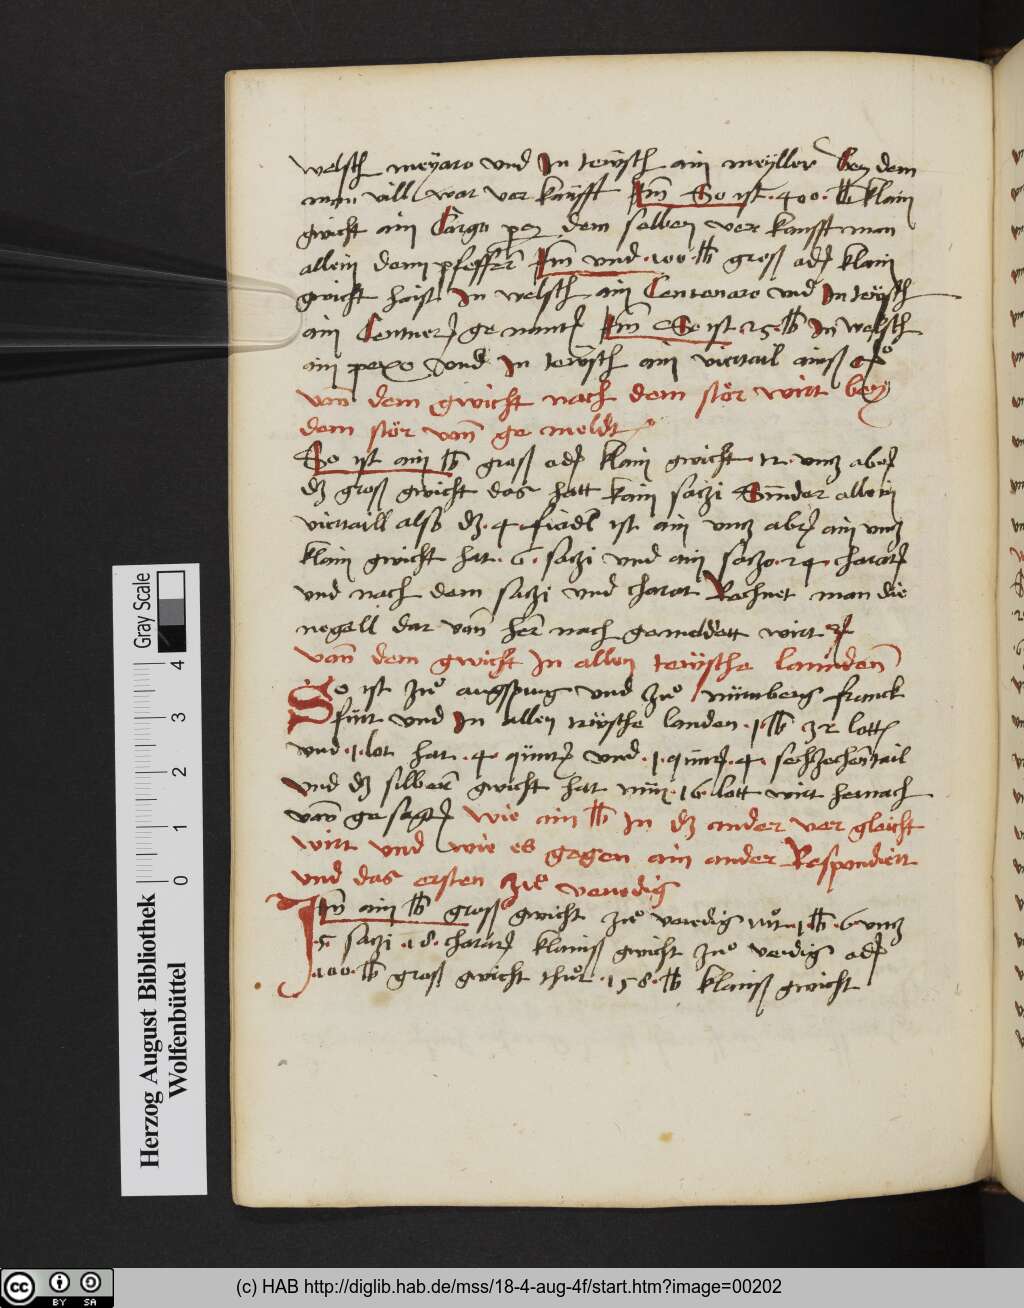 welsch meÿaro vnd In teẅsch ain meÿller beÿ dem
man vill war ver kaüfft Itm̄ So ist ·400· ℔ klain
gwicht ain Cargo per dem selben ver kaufft man
allein denn pfeffer Itm̄ vnd ·100· ℔ gross oder klain
gwicht haist In welsch ain Centenaro vnd In teẅsch
ain Centner genant Itm̄ So ist 25 ℔ In welsch
ain pexo vnd In teẅsch ain viertail ainss
von dem gwicht nach dem stör wirt beÿ
dem stör von gemeldt
So ist ain ℔ gross oder klain gwicht 12 vnz aber
dz gross gwicht das hatt kain sazi Sünder allein
viertaill also dz 4 ist ain vnz aber ain vnz
klain gwicht hat ·6· sazi vnd ain sazo ·24· charat
vnd nach dem sazi vnd charat Rechnet man die
negell dar von her nach gemeldett wirt
von dem gwicht In allen teẅsche landen
So ist zuo augspurg vnd zuo nürmberg franck
furt vnd In allen teẅsche landen ·1· ℔ 32 lott
vnd ·1· lot hat ·4· quint vnd ·1· quint ·4· sechzechentail
vnd dz silberi gwicht hat nun ·16· lott wirt hernach
von gesagt wie ain ℔ In dz ander ver gleicht
wirt vnd wie es gegen ain ander Respondiert
vnd das ersten zuo venedig
Itm̄ ain ℔ gross gwicht zuo venedig tuot ·1 ℔ ·6 vnz
·5· sazi ·18· charat klainss gwicht zuo venedig oder
·100· ℔ gross gwicht thuot ·158· ℔ klainss gwicht
Gray Scale
0 1 2 3 4
Herzog August Bibliothek
Wolfenbüttel
cc BY SA
(c) HAB http://diglib.hab.de/mss/18-4-aug-4f/start.htm?image=00202